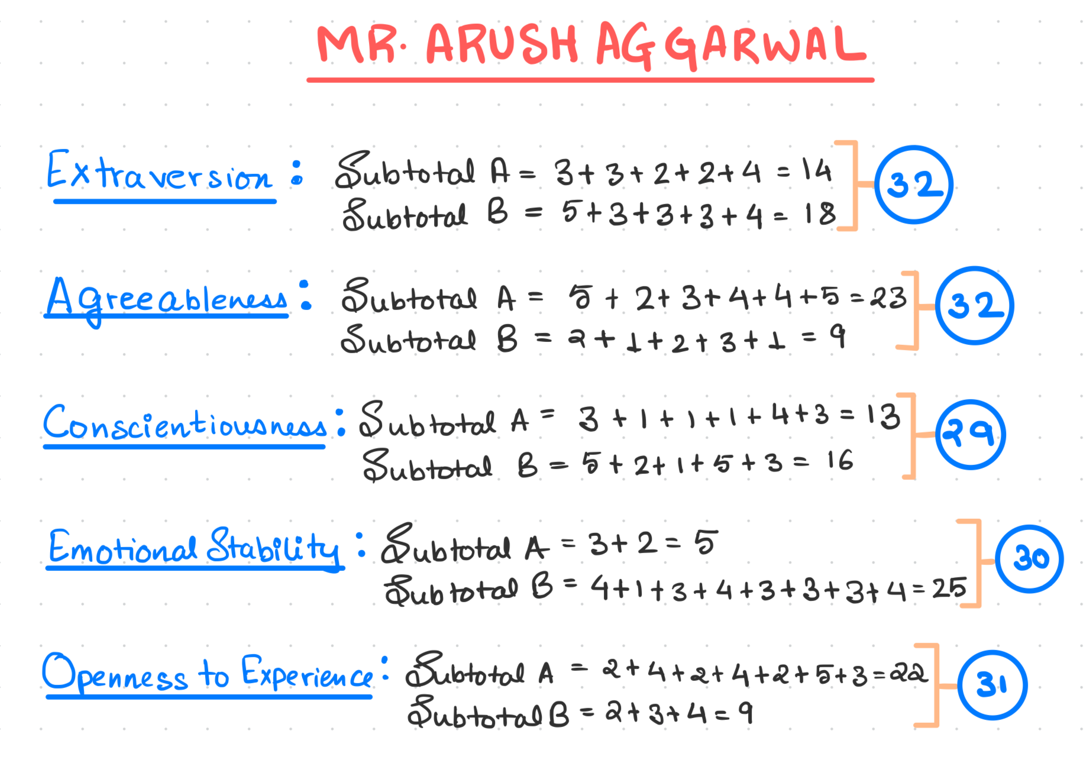 MR. ARUSH AGGARWAL
Extraversion : Subtotal A = 3+3+2+2+4 = 14
Subtotal B = 5+3+3+3+4 = 18
32
Agreeableness : Subtotal A = 5 + 2+3+4+4+5 = 23
Subtotal B = 2+1+2+3+1 = 9
32
Conscientiousness : Subtotal A = 3 +1+1+1+4+3 = 13
Subtotal B = 5+2+1+5+3 = 16
29
Emotional Stability : Subtotal A = 3+2 = 5
Subtotal B = 4+1+3+4+3+3+3+4 = 25
30
Openness to Experience : Subtotal A = 2+4+2+4+2+5+3 = 22
Subtotal B = 2+3+4 = 9
31